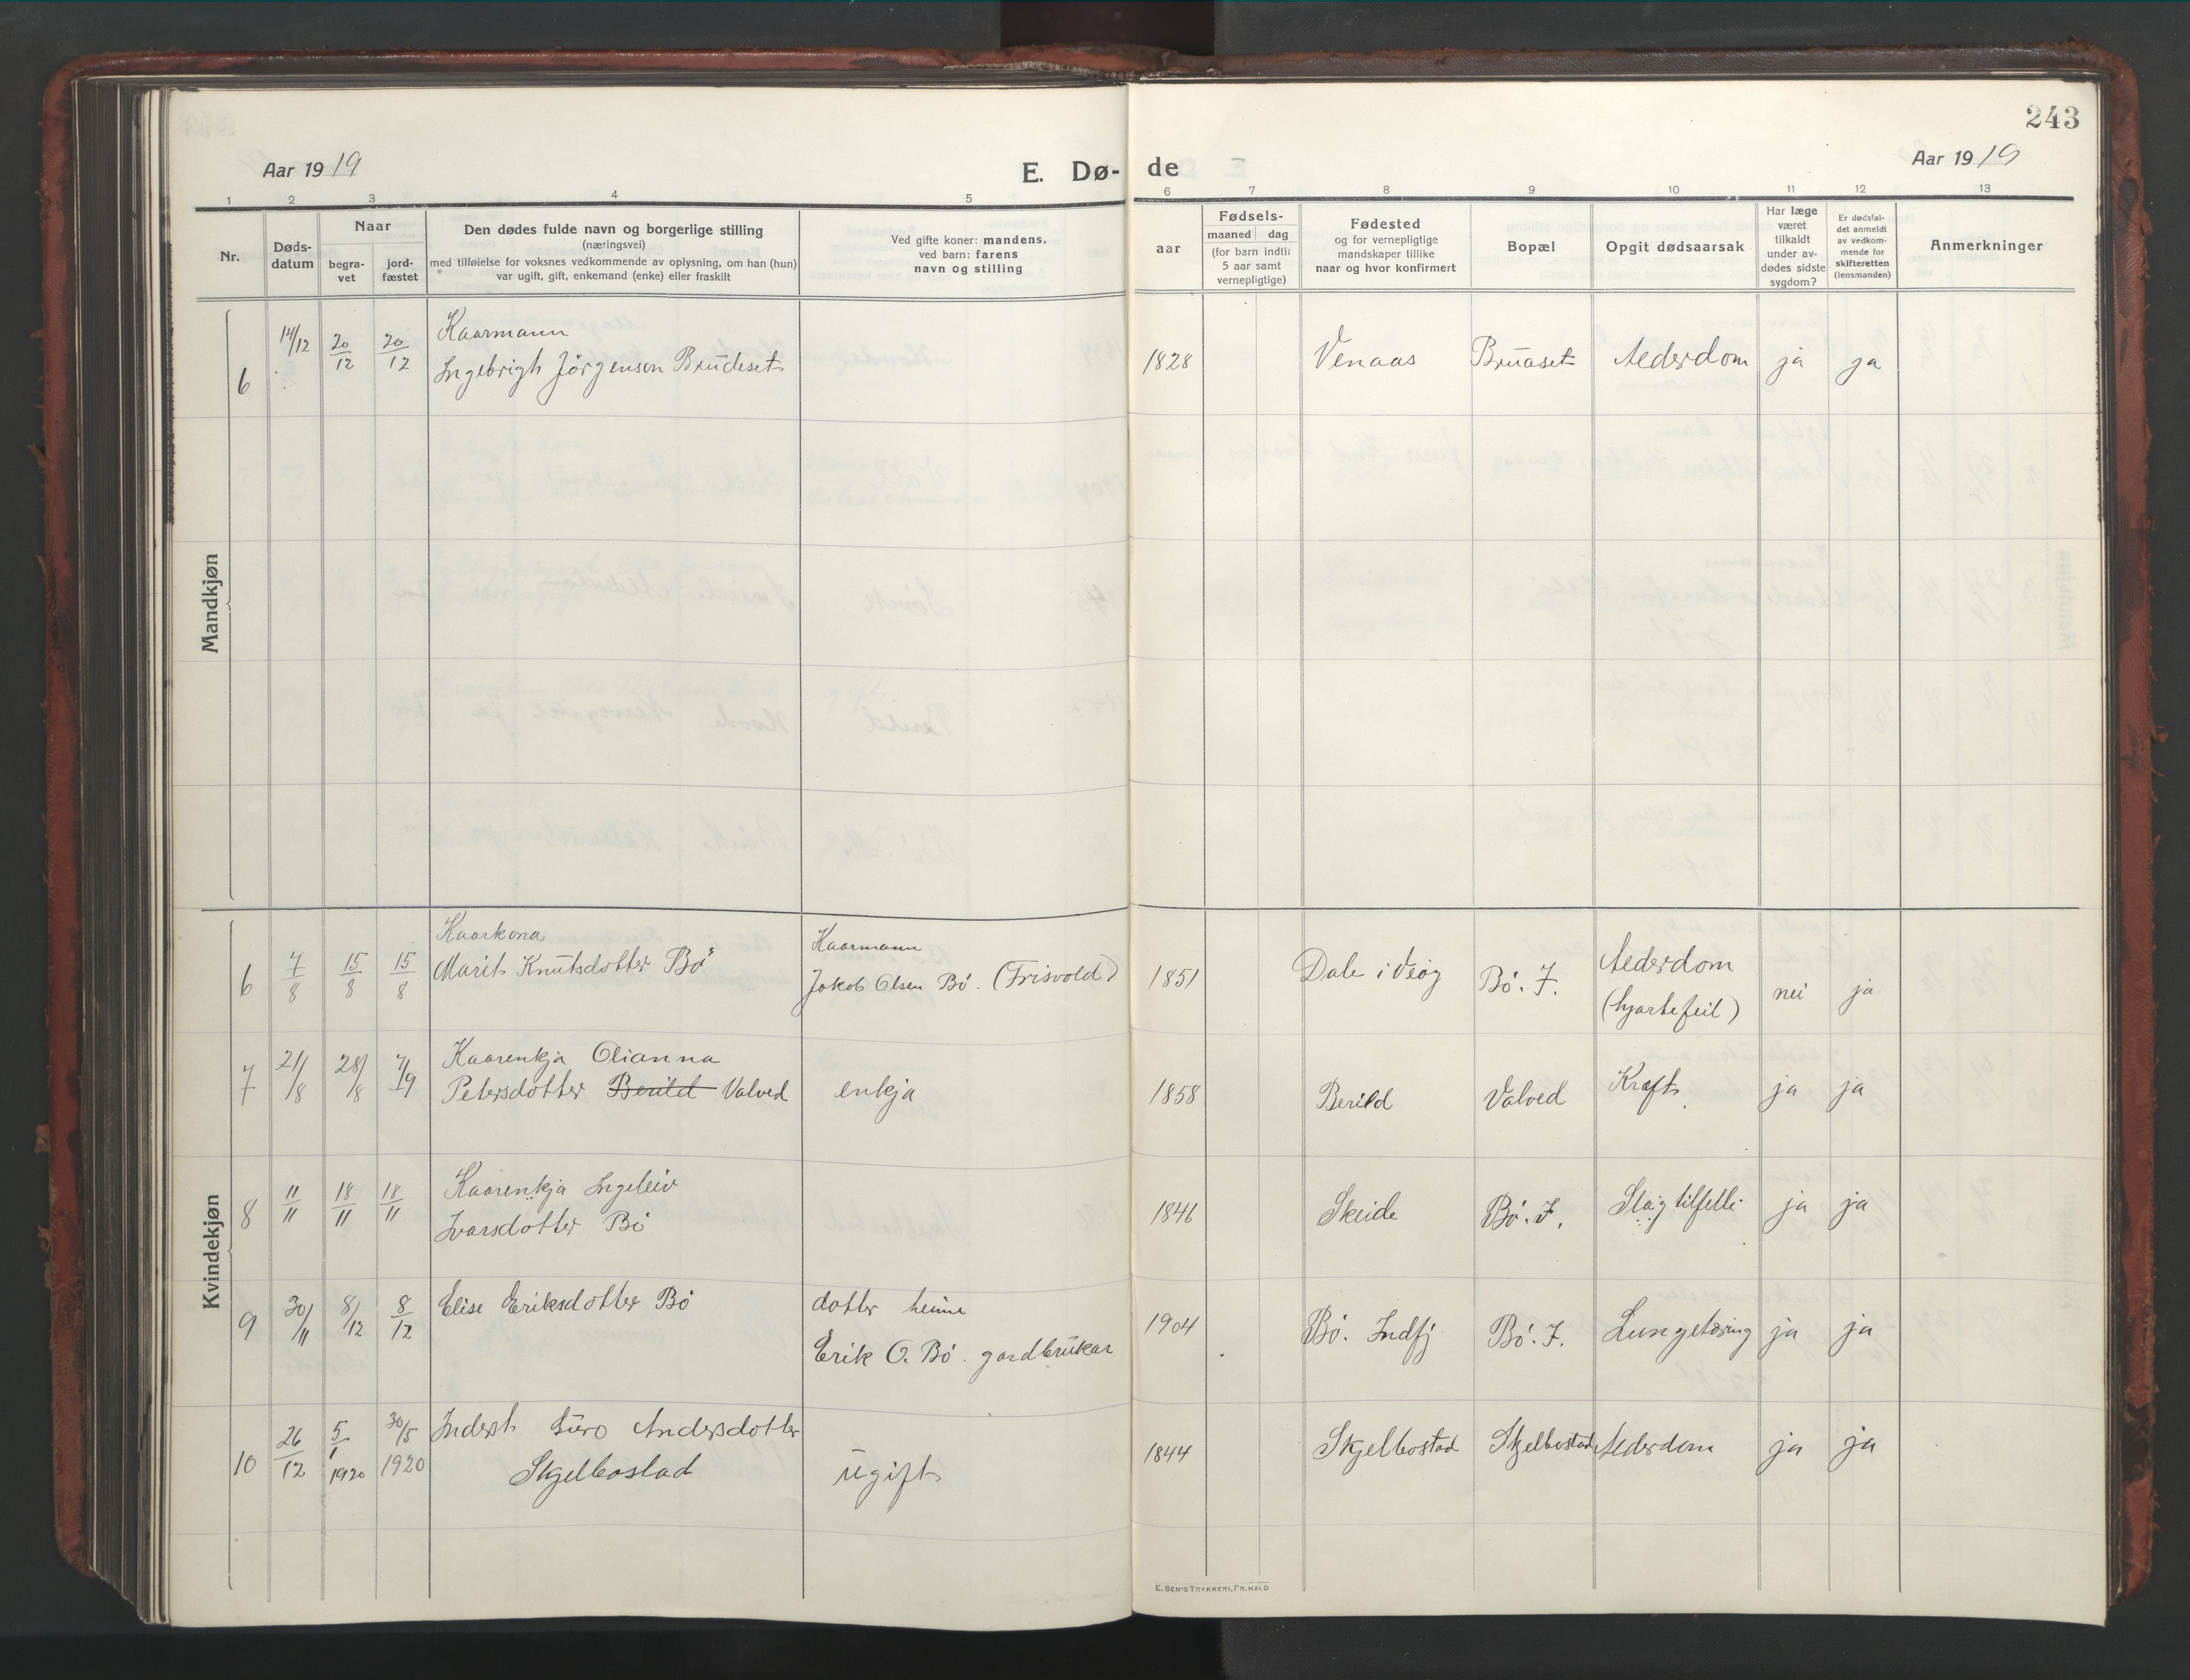 243
Aar 1919
E. Dø-
de
Aar 1919
1 2 3 4 5 6 7 8 9 10 11 12 13
Nr.
Døds-
datum
Naar
begra-
vet
jord-
fæstet
Den dødes fulde navn og borgerlige stilling
(næringsvei)
med tilføielse for voksnes vedkommende av oplysning, om han (hun)
var ugift, gift, enkemand (enke) eller fraskilt
Ved gifte koner: mandens,
ved barn: farens
navn og stilling
aar
Fødsels-
maaned dag
(for barn indtil
5 aar samt
vernepligtige)
Fødested
og for vernepligtige
mandskaper tillike
naar og hvor konfirmert
Bopæl
Opgit dødsaarsak
Har læge
været
tilkaldt
under av-
dødes sidste
sygdom?
Er dødsfal-
det anmeldt
av vedkom-
mende for
skifteretten
(lensmanden)
Anmerkninger
Mandkjøn
Kaarmann
6 14/12 20/12 20/12 Ingebrigt Jörgenson Brudeset 1828 Venaas Bruaset Alderdom ja ja
Kvindekjøn
Kaarkona Kaarmann Alderdom
6 7/8 15/8 15/8 Marit Knutsdotter Bö Jakob Olsen Bö. (Frisvold) 1851 Dale i Veöy Bö. I. (hjartefeil) nei ja
Kaarenkja Olianna
7 21/8 28/8 7/9 Petersdotter Berild Valved enkja 1858 Berild Valved Kræft ja ja
Kaarenkja Ingeleiv
8 11/11 18/11 18/11 Ivarsdotter Bö 1846 Skeide Bö. I. Slagtilfelle ja ja
9 30/11 8/12 8/12 Elise Eriksdotter Bö dotter heime 1904 Bö. Indfj Bö. I. Lungetæring ja ja
Erik O. Bö. gardbrukar
10 26/12 5/1 1920 30/5 1920 Inderst Guro Andersdotter ugift 1844 Skjelbostad Skjelbostad Alderdom ja ja
Skjelbostad
E. SEM'S TRYKKERI, FR. HALD